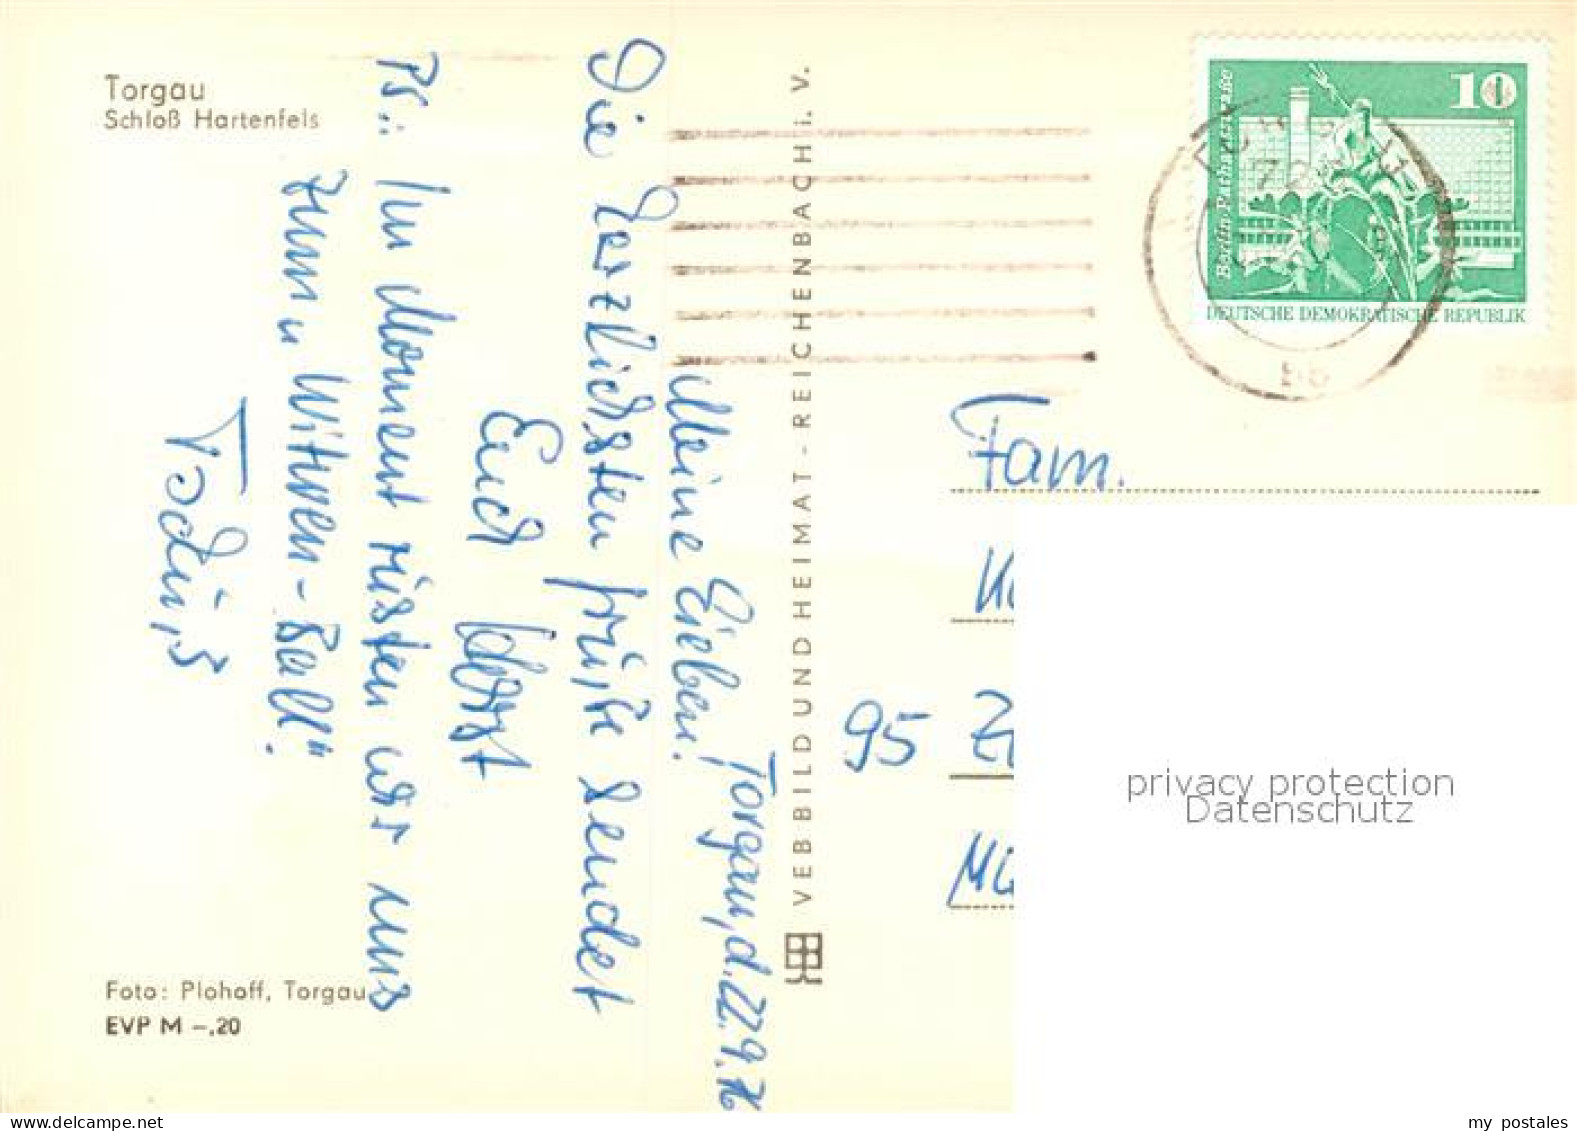 Torgau
Schloß Hartenfels
Torgau, d. 22.9.76
Meine Lieben!
Die herzlichsten Grüße sendet
Euch Horst
Ps.: Im Moment rüsten wir uns
zum „Witwen-Ball".
Tschüß
Foto: Plohoff, Torgau
EVP M –,20
VEB BILD UND HEIMAT - REICHENBACH i. V.
10
Berlin-Rathausstraße
DEUTSCHE DEMOKRATISCHE REPUBLIK
Fam.
95
privacy protection
Datenschutz
www.delcampe.net
my postales